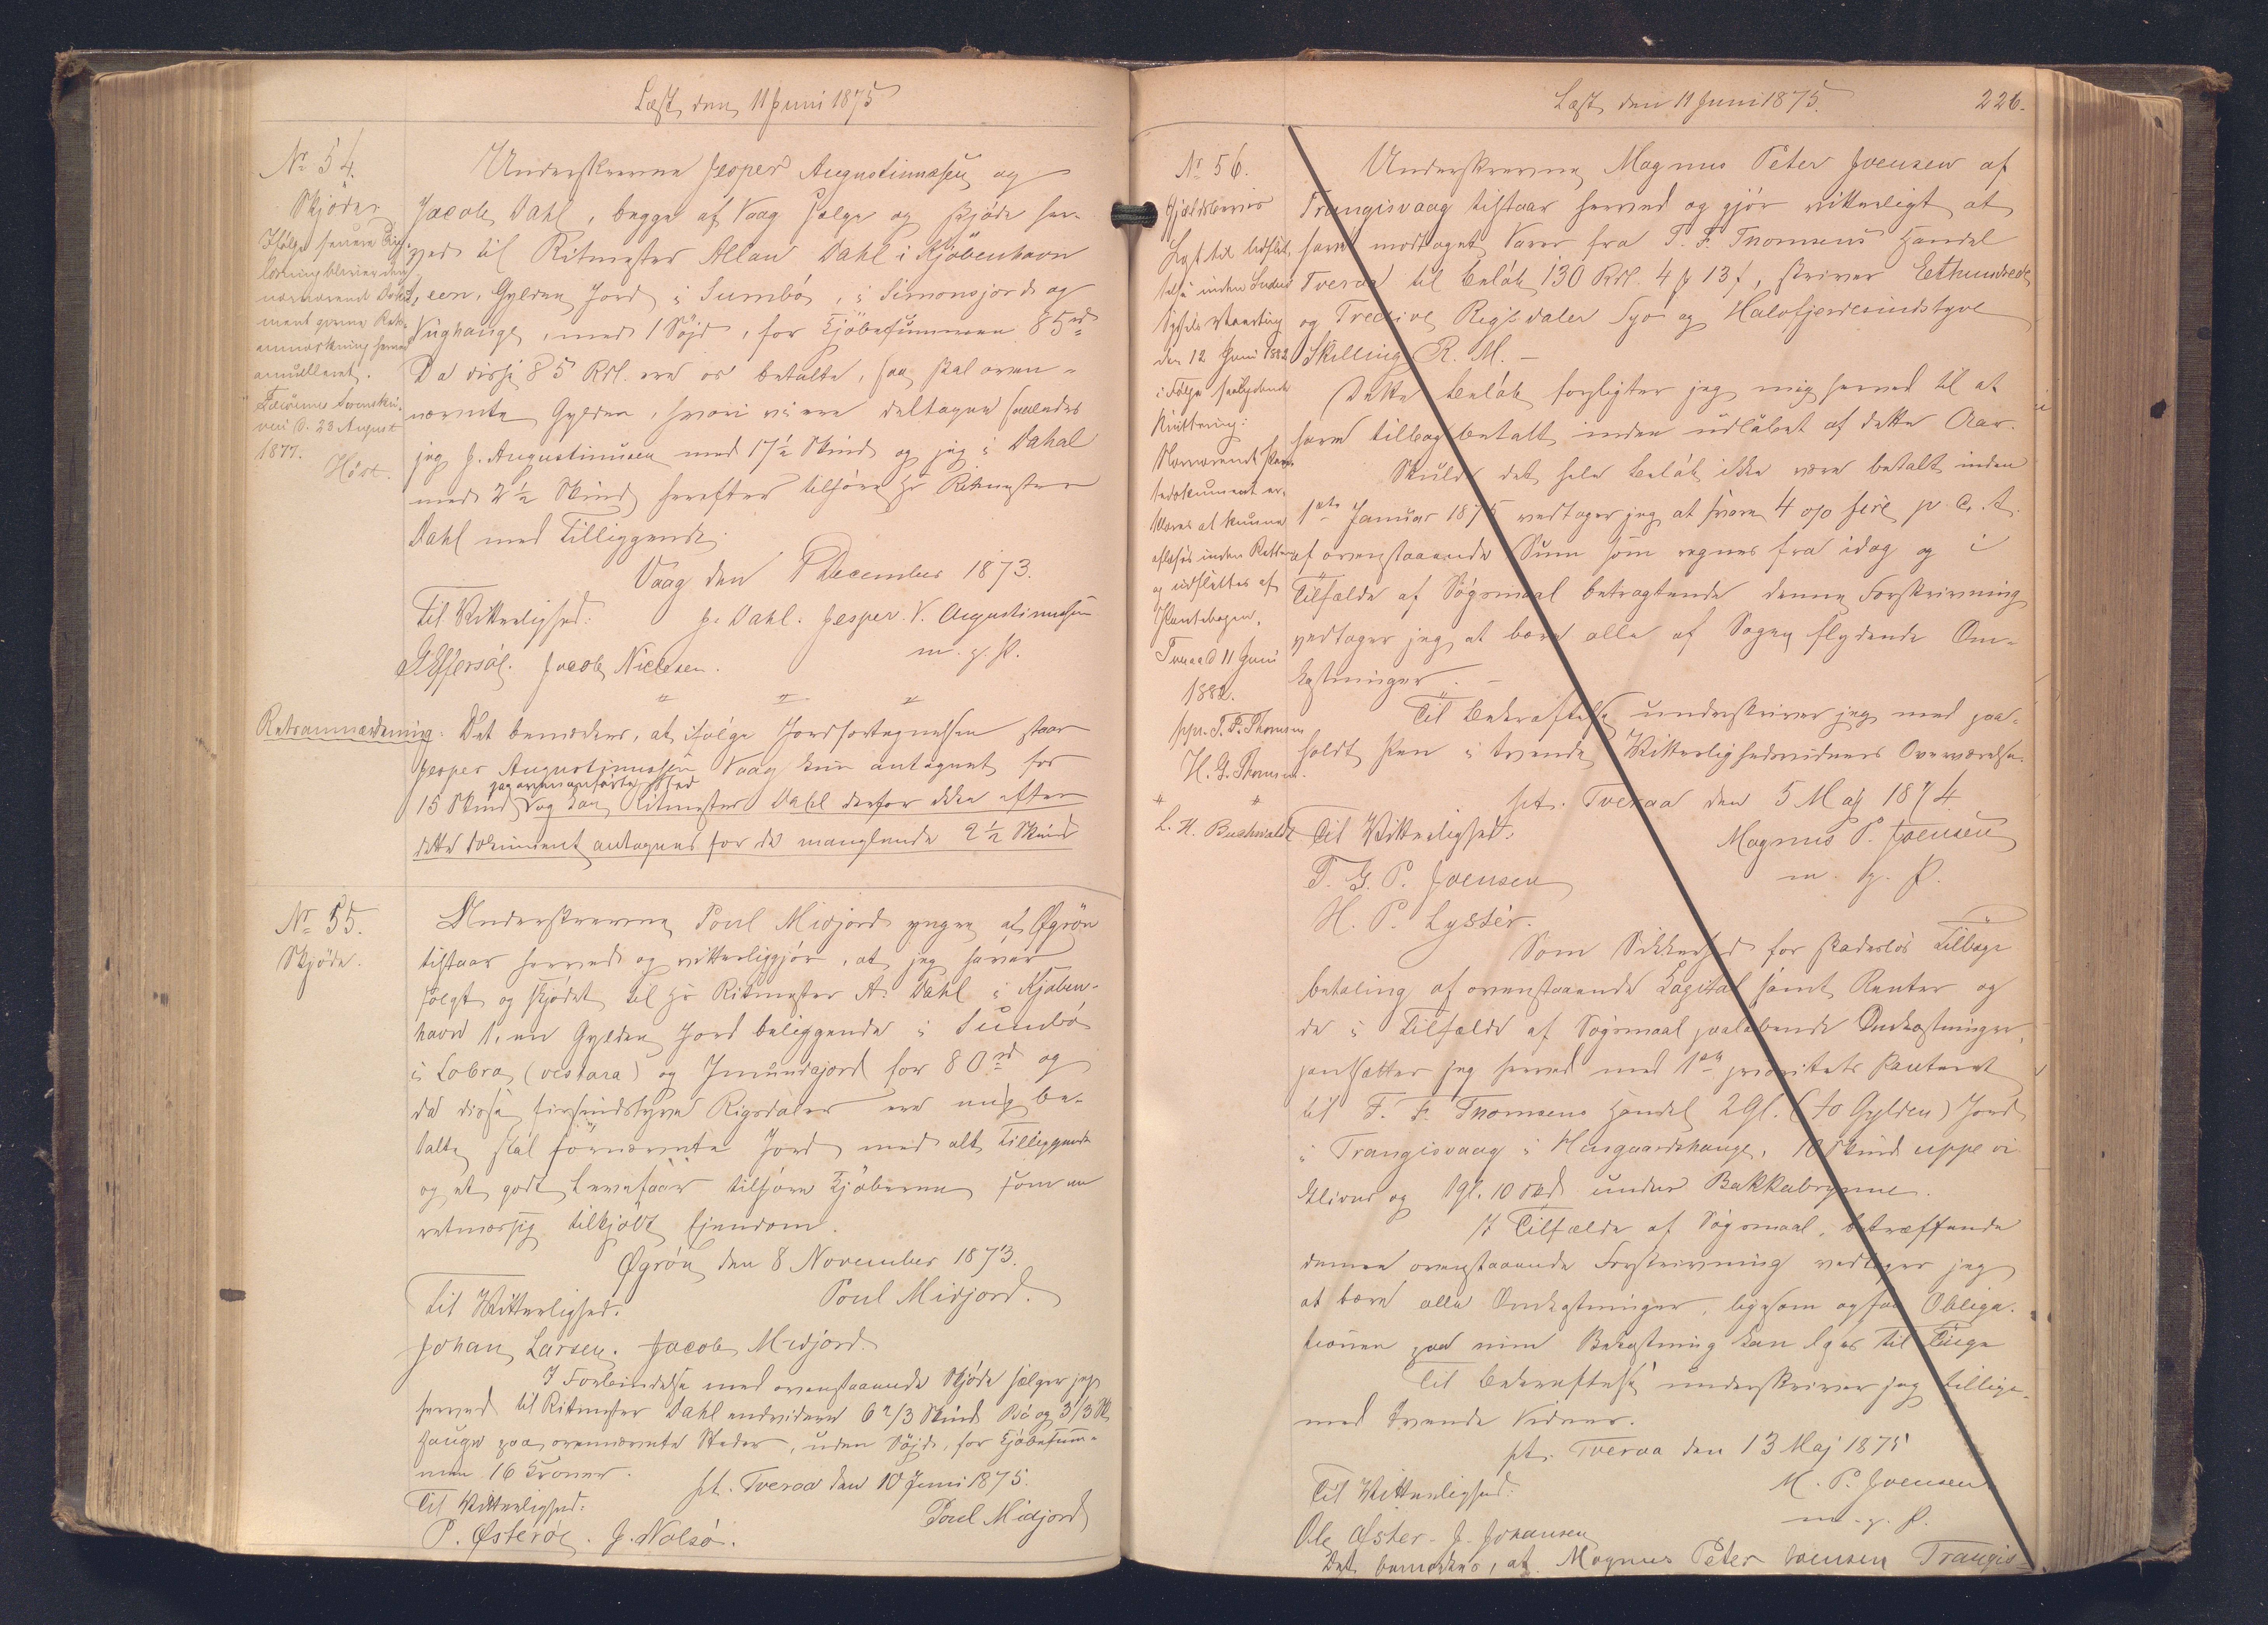 Læst den 11 Juni 1875
No 54.
Skjöde.
Ifölge senere
lærning bliver den
nærværende Doku-
ment Ret-
anmærkning herved
annulleret.
Færöernes Sorenskri-
veri d. 23 August
1877.
Höst.
Underskrevne Jesper Augustinussen og
Jacob Dahl, begge af Vaag sælge og skjöde her-
ved til Ritmester Allan Dahl i Kjöbenhavn
1, een, Gylden Jord i Sumbö, i Simonsjord og
hauge, med 1 Söjd, for Kjöbesummen 85 rd
Da disse 85 Rdl. ere os betalte, saa skal oven-
nævnte Gylden, hvori vi ere deltagere saaledes
jeg J. Augustinusen med 17½ Skind og jeg J. Dahl
med 2½ Skind herefter tilhöre Hr Ritmester
Dahl med Tilliggende.
Vaag den December 1873.
Til Vitterlighed: J. Dahl. Jesper. V. Augustinussen
m. p. P.
Jacob Nielsen.
Retsanmærkning: Det bemærkes, at ifölge Jordfortegnelsen staar
Jesper Augustinussen Vaag kun antegnet for
paa ovenanförte Sted
15 Skind og kan Ritmester Dahl derfor ikke efter
dette Dokument antegnes for de manglende 2½ Skind
No 55.
Skjöde.
Underskrevne Poul Midjord yngre af Øgrön
tilstaar herved og vitterliggjör, at jeg haver
solgt og skjödet til Hr Ritmester A. Dahl i Kjöben-
havn 1, en Gylden Jord beliggende i Sumbö
i Lobra (vestara) og Imundajord for 80 rd og
da disse firsindstyve Rigsdaler ere mig be-
talte skal fornævnte Jord med alt Tilliggende
og et godt Levefaar tilhöre Kjöberen som en
retmæssig tilkjöbt Ejendom.
Øgrön den 8 November 1873.
Til Vitterlighed: Poul Midjord.
Johan Larsen. Jacob Midjord.
I Forbindelse med ovenstaaende Skjöde sælger jeg
herved til Ritmester Dahl endvidere 6 2/3 Skind Bö og 3 1/3 Sk
Hauge paa ovennævnte Steder, uden Söjde, for Kjöbesum-
men 16 Kroner. pt. Tveraa den 10 Juni 1875.
Til Vitterlighed: Poul Midjord
P. Østeröe. J. Nolsö.
Læst den 11 Juni 1875. 226.
No 56.
Gjældsbrevis
Lyst til Udslet-
telse inden Suderö
Syssels Vaarting
den 12 Juni 1882
i Fölge saalydende
Kvittering:
Nærværende Pan-
tedokument er-
klæres at kunne
aflæses inden Retten
og udslettes af
Pantebogen.
Tveraa d 11 Juni
1882.
ppr. T. F. Thomsen
H. G. Thomsen.
L. H. Buchwaldt
Underskrevne Magnus Peter Joensen af
Trangisvaag tilstaar herved og gjör vitterligt at
have modtaget Varer fra T. F. Thomsens Handel
Tveraa til Belöb 130 Rdl. 4 ß 13 f, skriver Ethundrede
og Tredive Rigsdaler Syv og Halvfjerdesindstyve
Skilling R. M. –
Dette Belöb forpligter jeg mig herved til at
have tilbagebetalt inden Udlöbet af dette Aar.
Skulde det hele Belöb ikke være betalt inden
1ste Januar 1875 vedtager jeg at svare 4 o/o fire p. C. A.
af ovenstaaende Sum som regnes fra idag og i
Tilfælde af Sögsmaal betragtende denne Forskrivning
vedtager jeg at bære alle af Sagen flydende Om-
kostninger. –
Til Bekræftelse underskriver jeg med paa-
holdt Pen i tvende Vitterlighedsvidners Overværelse.
pt. Tveraa den 5 Maj 1874
Til Vitterlighed: Magnus P. Joensen
T. G. P. Joensen m. p. P.
H. P. Lystér.
Som Sikkerhed for skadeslös Tilbage
betaling af ovenstaaende Kapital samt Renter og
de i Tilfælde af Sögsmaal paalöbende Omkostninger,
pantsætter jeg herved med 1ste Prioritets Panteret
til T. F. Thomsens Handel 2 Gl. (to Gylden) Jord
i Trangisvaag i Heigaardshauge, 10 Skind uppe vi
Klivar og 1 gl. 10 Skd under Bakkabrynne.
I Tilfælde af Sögsmaal, betræffende
denne ovenstaaende Forskrivning vedtager jeg
at bære alle Omkostninger, ligesom ogsaa Obliga-
tionen paa min Bekostning kan læses til Tinge
Til Bekræftelse underskriver jeg tillige-
med tvende Vidner.
pt. Tveraa den 13 Maj 1875
Til Vitterlighed: M. P. Joensen
Ole Øster. J. Johansen m. p. P.
Det bemærkes, at Magnus Peter Joensen Trangis-